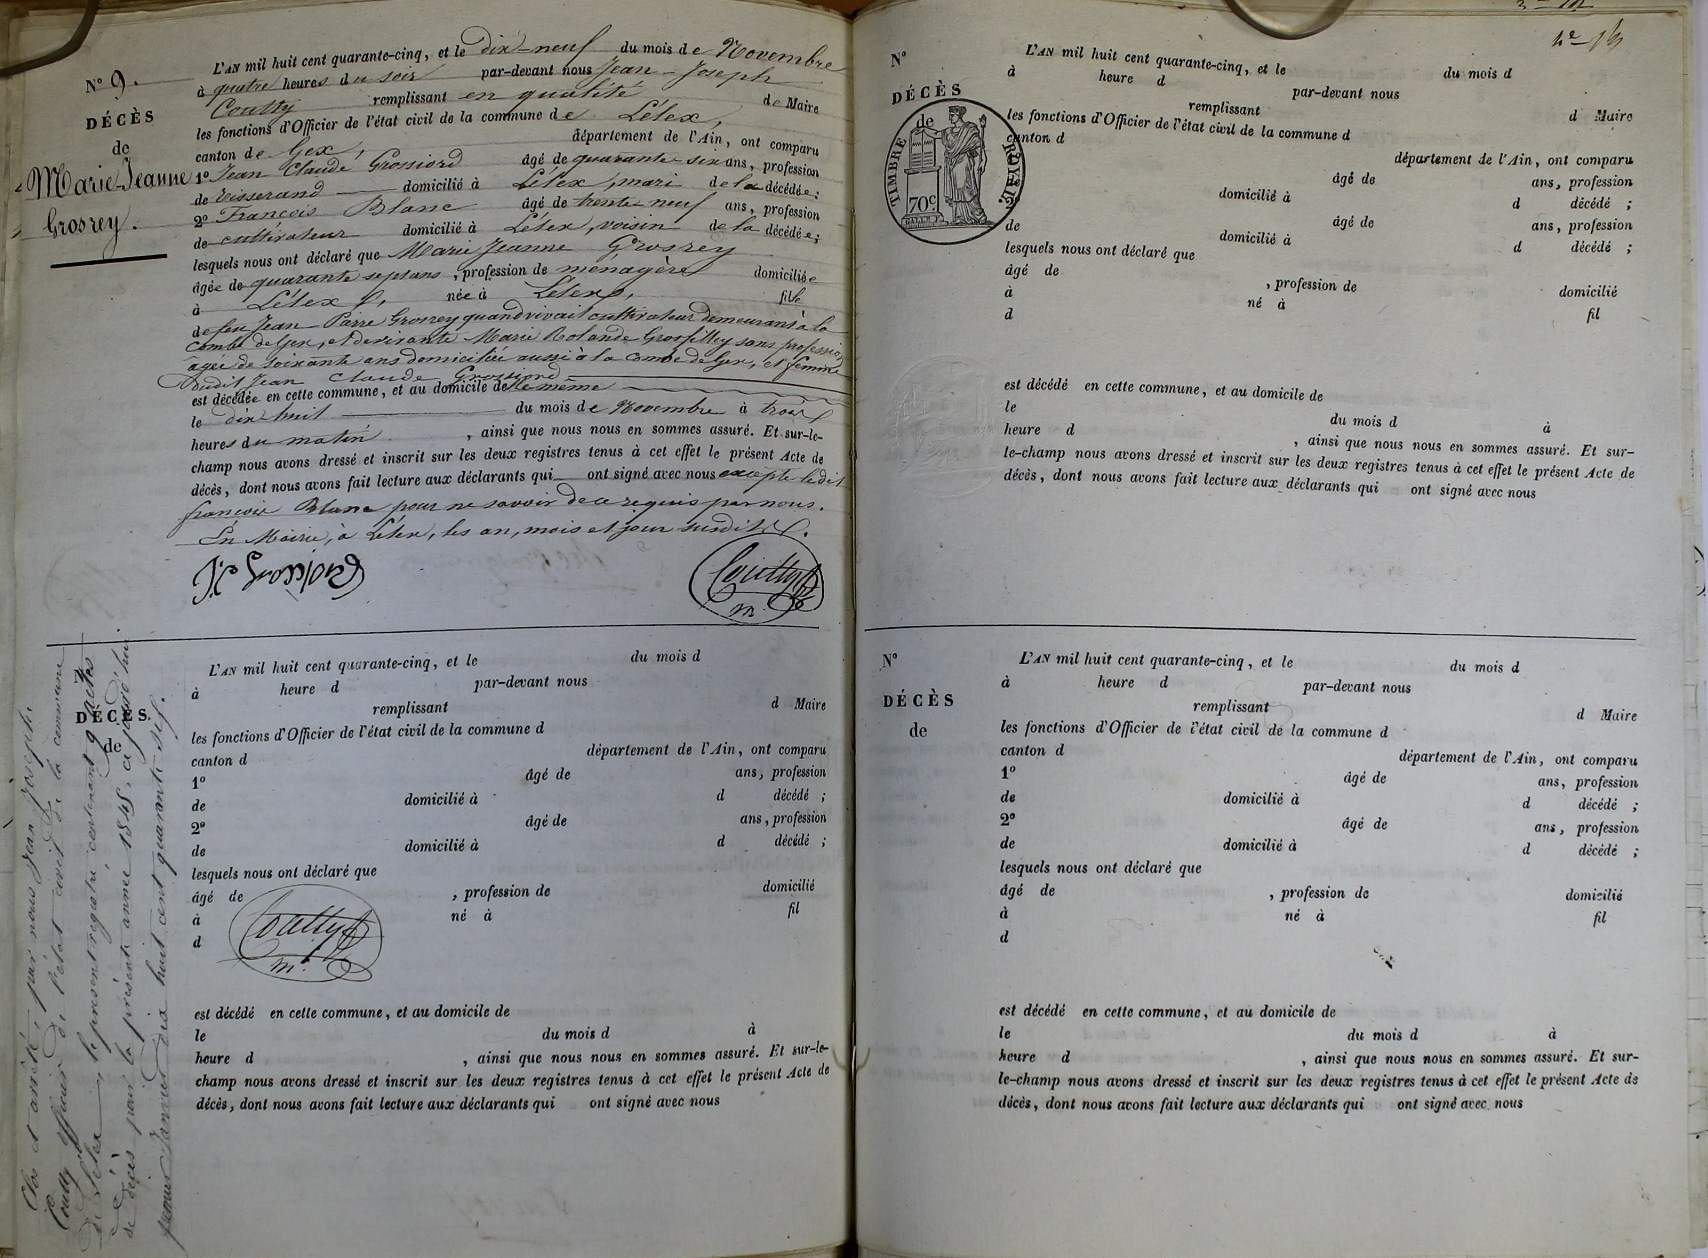 N° 9.
DÉCÈS
de
Marie Jeanne
Grosrey.
L'AN mil huit cent quarante-cinq, et le dix-neuf du mois de Novembre
à quatre heures du soir par-devant nous Jean-Joseph
Coutty remplissant en qualité de Maire
les fonctions d'Officier de l'état civil de la commune de Lélex,
canton de Gex, département de l'Ain, ont comparu
1° Jean Claude Grossiord âgé de quarante six ans, profession
de tisserand domicilié à Lélex, mari de la décédée;
2° François Blanc âgé de trente neuf ans, profession
de cultivateur domicilié à Lélex, voisin de la décédée;
lesquels nous ont déclaré que Marie Jeanne Grosrey
âgée de quarante sept ans, profession de ménagère domiciliée
à Lélex, née à Lélex, fille
de feu Jean-Pierre Grosrey quand vivait cultivateur demeurant à la
combe de Gex, et de vivante Marie Rolande Grosfilley sans profession
âgée de soixante ans domiciliée aussi à la combe de Gex, et femme
dudit Jean Claude Grossiord
est décédée en cette commune, et au domicile de le même
le dix-huit du mois de Novembre à trois
heures du matin, ainsi que nous nous en sommes assuré. Et sur-le-
champ nous avons dressé et inscrit sur les deux registres tenus à cet effet le présent Acte de
décès, dont nous avons fait lecture aux déclarants qui ont signé avec nous excepté ledit
françois Blanc pour ne savoir de ce requis par nous.
En Mairie, à Lélex, les an, mois et jour susdits.
J. C. Grossiord
Coutty
m.
DÉCÈS.
de
L'AN mil huit cent quarante-cinq, et le du mois d
à heure d par-devant nous
remplissant d Maire
les fonctions d'Officier de l'état civil de la commune d
canton d département de l'Ain, ont comparu
1° âgé de ans, profession
de domicilié à d décédé ;
2° âgé de ans, profession
de domicilié à d décédé ;
lesquels nous ont déclaré que
âgé de , profession de domicilié
à né à fil
d
Coutty
m.
est décédé en cette commune, et au domicile de
le du mois d à
heure d , ainsi que nous nous en sommes assuré. Et sur-le-
champ nous avons dressé et inscrit sur les deux registres tenus à cet effet le présent Acte de
décès, dont nous avons fait lecture aux déclarants qui ont signé avec nous
Clos et arrêté, par nous Jean Joseph
Coutty officier de l'état civil de la commune
de Lélex, le présent registre contenant 9 actes
de décès pour la présente année 1845, ce jourd'hui
premier Janvier mil huit cent quarante six.
N°
DÉCÈS
de
TIMBRE ROYAL
70c
L'AN mil huit cent quarante-cinq, et le du mois d
à heure d par-devant nous
remplissant d Maire
les fonctions d'Officier de l'état civil de la commune d
canton d département de l'Ain, ont comparu
âgé de ans, profession
domicilié à d décédé ;
âgé de ans, profession
de domicilié à d décédé ;
lesquels nous ont déclaré que
âgé de , profession de domicilié
à né à fil
d
est décédé en cette commune, et au domicile de
le du mois d à
heure d , ainsi que nous nous en sommes assuré. Et sur-
le-champ nous avons dressé et inscrit sur les deux registres tenus à cet effet le présent Acte de
décès, dont nous avons fait lecture aux déclarants qui ont signé avec nous
N°
DÉCÈS
de
L'AN mil huit cent quarante-cinq, et le du mois d
à heure d par-devant nous
remplissant d Maire
les fonctions d'Officier de l'état civil de la commune d
canton d département de l'Ain, ont comparu
1° âgé de ans, profession
de domicilié à d décédé ;
2° âgé de ans, profession
de domicilié à d décédé ;
lesquels nous ont déclaré que
âgé de , profession de domicilié
à né à fil
d
est décédé en cette commune, et au domicile de
le du mois d à
heure d , ainsi que nous nous en sommes assuré. Et sur-
le-champ nous avons dressé et inscrit sur les deux registres tenus à cet effet le présent Acte de
décès, dont nous avons fait lecture aux déclarants qui ont signé avec nous